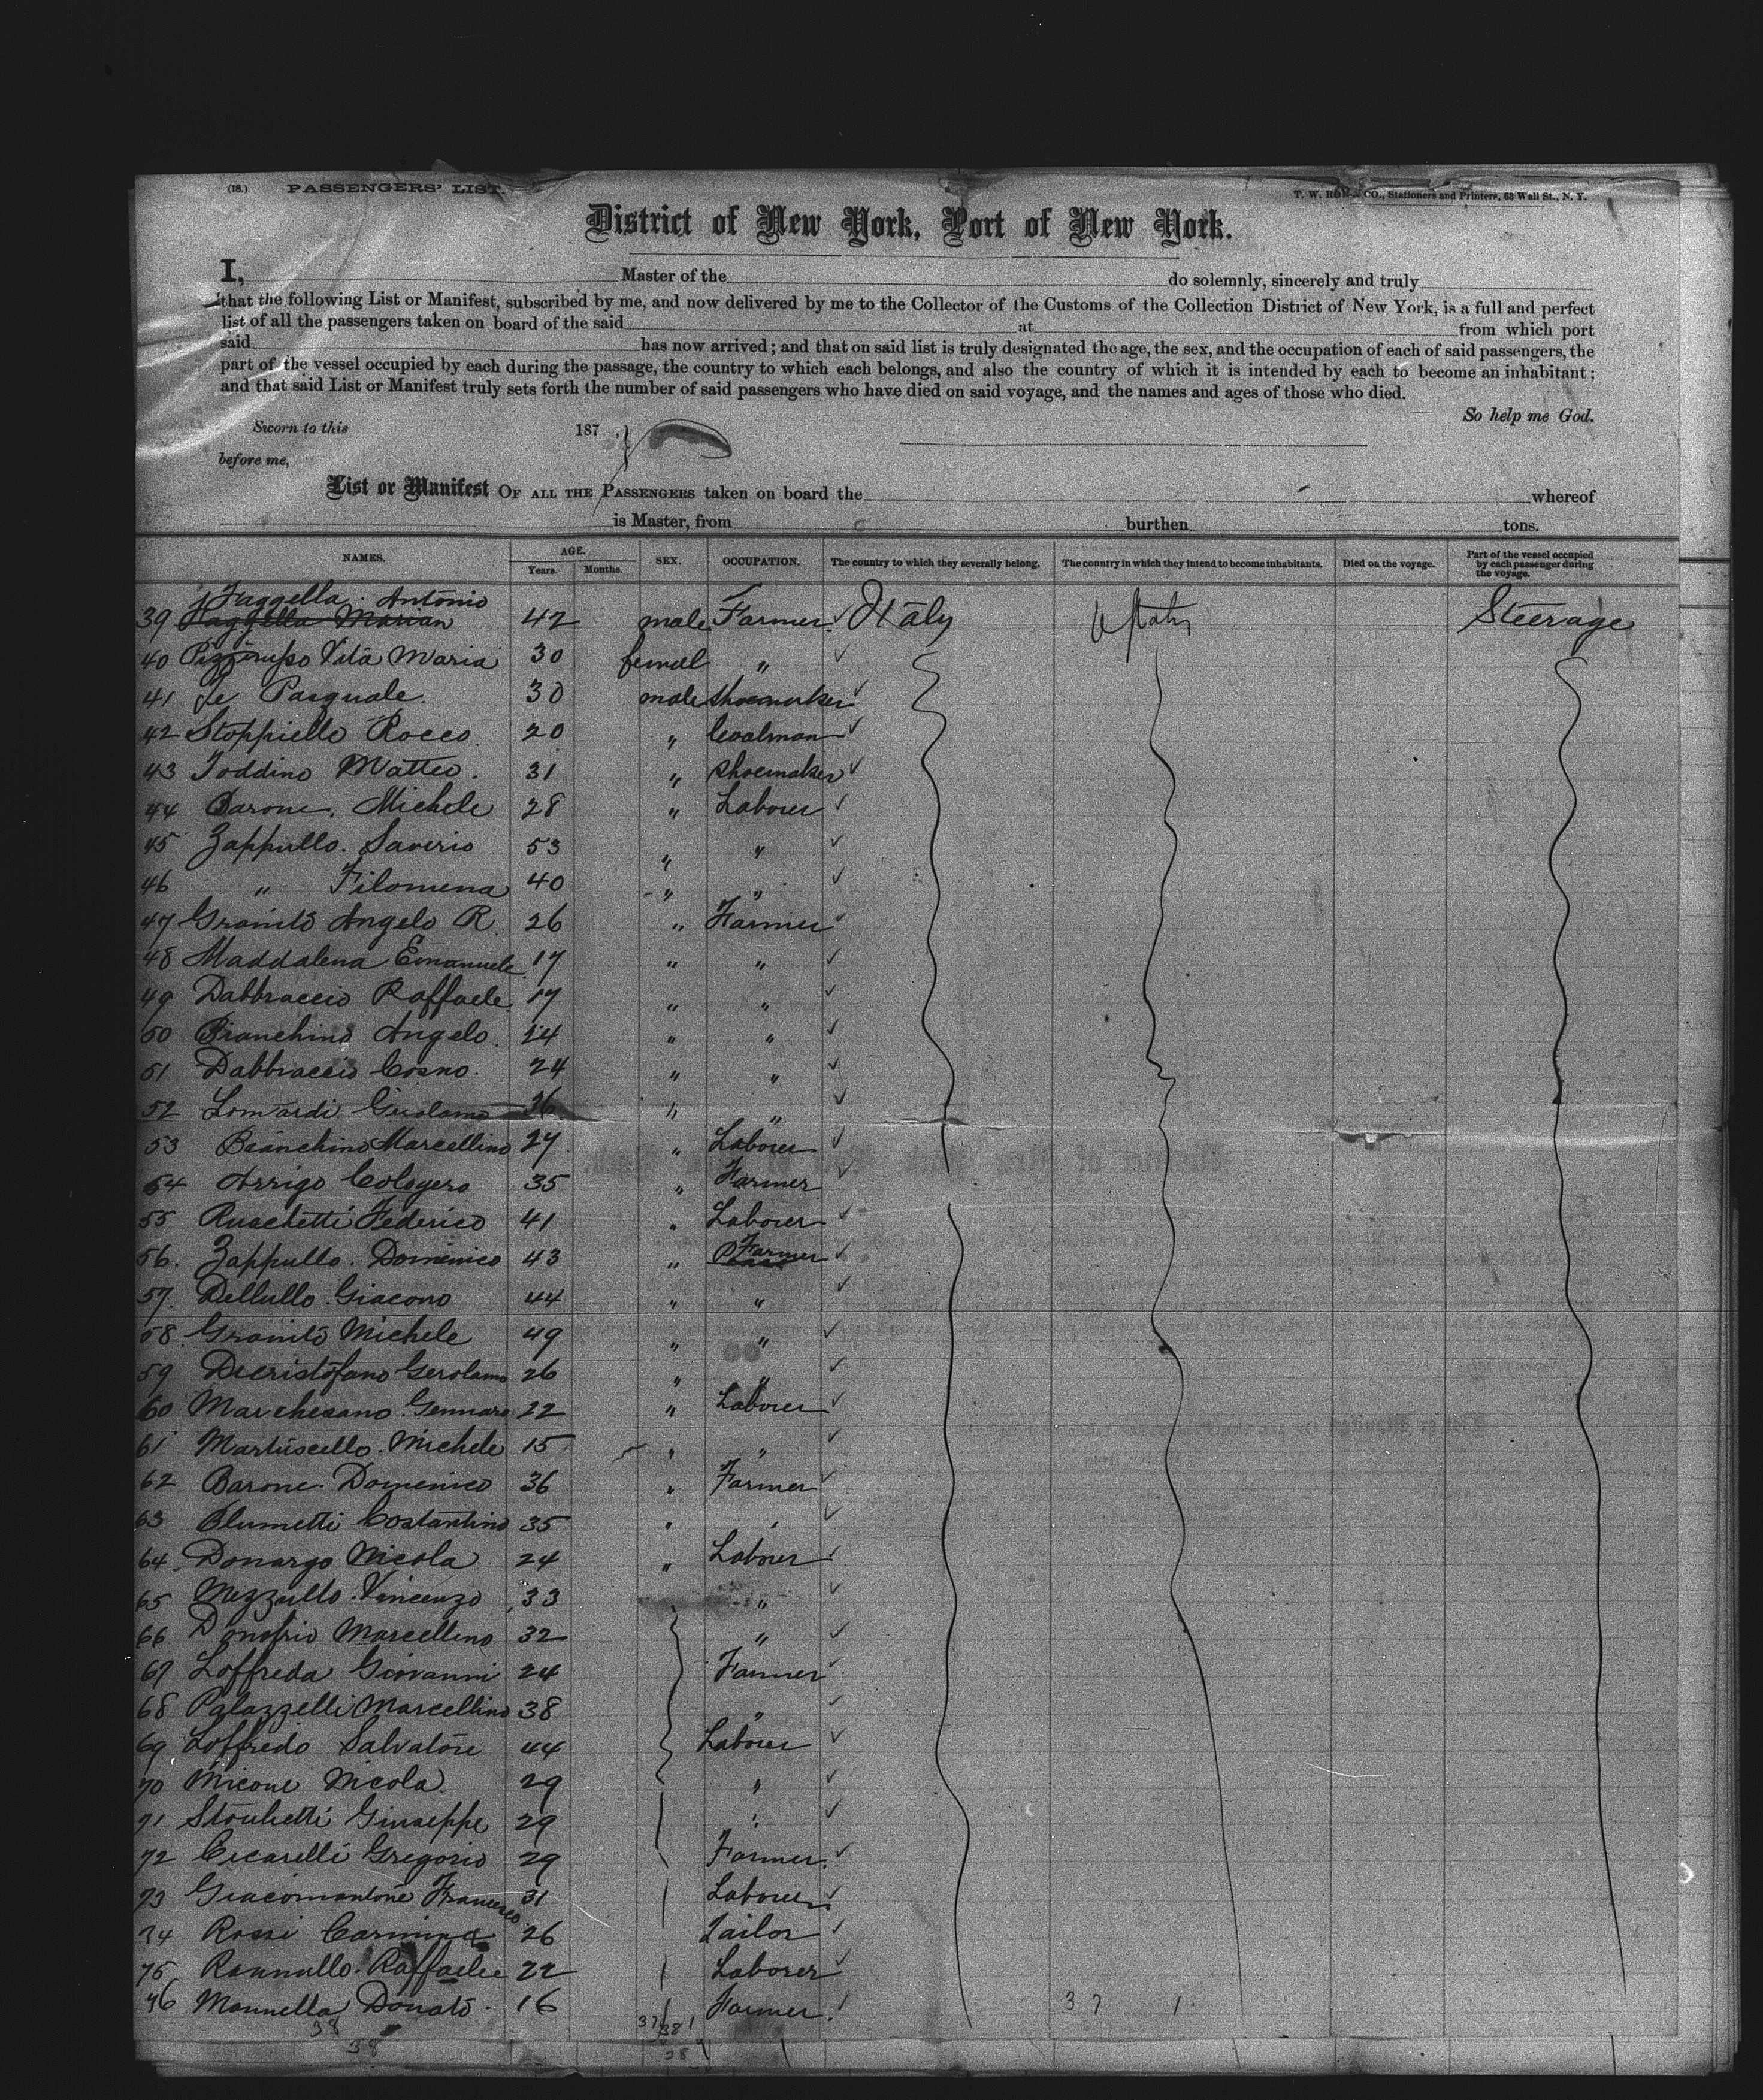 (18.) PASSENGERS' LIST. T. W. ROW & CO., Stationers and Printers, 63 Wall St., N. Y.
District of New York, Port of New York.
I, Master of the do solemnly, sincerely and truly
that the following List or Manifest, subscribed by me, and now delivered by me to the Collector of the Customs of the Collection District of New York, is a full and perfect
list of all the passengers taken on board of the said at from which port
said has now arrived; and that on said list is truly designated the age, the sex, and the occupation of each of said passengers, the
part of the vessel occupied by each during the passage, the country to which each belongs, and also the country of which it is intended by each to become an inhabitant;
and that said List or Manifest truly sets forth the number of said passengers who have died on said voyage, and the names and ages of those who died.
So help me God.
Sworn to this 187
before me,
List or Manifest OF ALL THE PASSENGERS taken on board the whereof
is Master, from burthen tons.
NAMES. AGE. Years. Months. SEX. OCCUPATION. The country to which they severally belong. The country in which they intend to become inhabitants. Died on the voyage. Part of the vessel occupied by each passenger during the voyage.
Faggella Antonio
39 Faggella Marian 42 male Farmer Italy U States Steerage
40 Vita Maria 30 femal "
41 Pasquale 30 male shoemaker
42 Stoppiello Rocco 20 " Coalman
43 Toddino Matteo 31 " shoemaker
44 Barone, Michele 28 " Laborer
45 Zappullo Saverio 53 " "
46 " Filomena 40 " "
47 Granito Angelo R. 26 " Farmer
48 Maddalena Emanuele 17 " "
49 Dabbraccio Raffaele 17 " "
50 Bianchino Angelo 24 " "
51 Dabbraccio Cosno 24 " "
52 Lomardi Girolamo 36 " "
53 Bianchino Marcellino 27 " Laborer
54 Arrigo Cologero 35 " Farmer
55 Ruachetti Federico 41 " Laborer
56. Zappullo Domenico 43 " Farmer
57. Dellullo Giacono 44 " "
58 Granito Michele 49 " "
59 Decristofano Gerolamo 26 " "
60 Marchesano Gennaro 22 " Laborer
61 Martuscello Michele 15 " "
62 Barone Domenico 36 " Farmer
63 Plumetti Costantino 35 " "
64 Donargo Nicola 24 " Laborer
65 Mezzullo Vincenzo 33 "
66 Donofrio Marcellino 32 "
67 Loffreda Giovanni 24 Farmer
68 Palazzelli Marcellino 38 "
69 Loffredo Salvatore 44 Laborer
70 Micone Nicola 29 "
71 Giuseppe 29 "
72 Cicarelli Gregorio 29 Farmer
73 Giacomantone Francesco 31 Laborer
74 Rossi Carmine 26 Tailor
75 Rannullo Raffaele 22 Laborer
76 Mannella Donato 16 Farmer 37 1
38 37 38 1
38 38